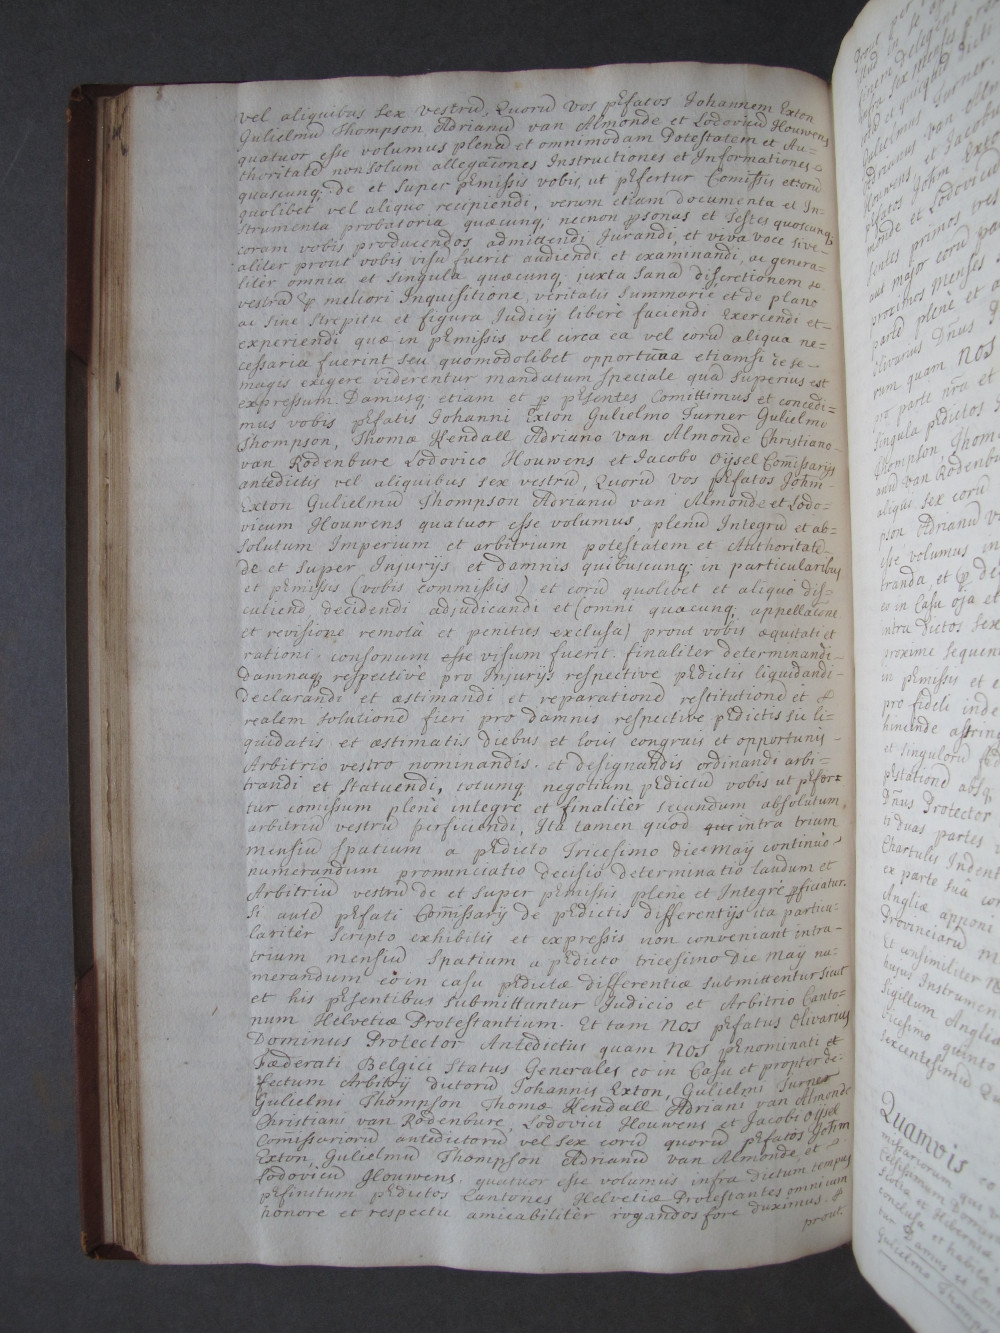 vel aliquibus sex vestrū, Quorū vos pEfatos Johannem Exton
Gulielmū Thompson, Adrianū van Almonde et Lodovicū Houwens
quatuor esse volumus plenā et omnimodam Potestatem et Au=
thoritatē non solum allegac̄ones Instructiones et Informationes
quascunq; de et super pEmissis vobis, ut pEfertur Comissis et eorū
quolibet vel aliquo recipiendi, verum etiam documenta et In=
strumenta probatoria quæcunq; necnon psonas et Testes quoscunq;
coram vobis producendos, admittendi Jurandi, et viva voce sive
aliter prout vobis visū fuerit audiendi et examinandi, ac genera=
liter omnia et singula quæcunq; juxta sanā discretionem
vestrā p meliori Inquisitione, veritatis summarie et de plano
ac sine strepitu et figura Judicij libere faciendi Exercendi et=
experiendi quæ in pEmissis vel circa ea vel eorū aliqua ne=
cessaria fuerint seu quomodolibet opportuna etiamsi de se -
magis exigere viderentur mandatum speciale quā superius est
expressum. Damusq; etiam et p pEsentes Comittimus et concedi=
mus vobis pEfatis Johanni Exton Gulielmo Turner Gulielmo
Thompson, Thomæ Kendall Adriano van Almonde Christiano
van Rodenburc Lodovico Houwens et Jacobo Oÿsel Com̄issarijs
antedictis vel aliquibus sex vestrū, Quorū vos pEfatos Johm̄
Exton Gulielmū Thompson Adrianū van Almonde et Lodo=
vicum Houwens quatuor esse volumus, plenū Integrū et ab=
solutum Imperium et arbitrium potestatem et Authoritatē
de et super Injurijs et Damnis quibuscunq; in particularibus
et pEmissis (vobis commissis) et eorū quolibet et aliquo dis=
cutiend decidendi adjudicandi et (omni quacunq; appellac̄one
et revisione remotā et penitus exclusa) prout vobis æquitati et
rationi consonum esse visum fuerit. finaliter determinandi
Damnaq; respectivè pro Injurijs respective pEdictis liquidandi
declarandi et æstimandi et reparationē restitutionē et
realem solutionē fieri pro damnis respective pEdictis sic li=
quidatis et æstimatis diebus et locis congruis et opportunis
Arbitrio vestro nominandis et designandis ordinandi arbi=
trandi et statuendi, totumq; negotium pEdictū vobis ut pEfer=
tur comissum plenè integre et finalitèr secundum absolutum,
arbitriū vestrū perficiendi, Ita tamen quod intra trium
mensiū spatium a pEdicto Tricesimo die Maÿ continuò
numerandum pronunciatio decisio determinatio laudum et
Arbitriū vestrū de et super pEmissis plenè et Integrè pficiatur.
Si autē pEfati Com̄issarij de pEdictis differentijs ita particu=
laritèr scripto exhibitis et expressis non conveniant intra-
trium mensiū spatium a pEdicto tricesimo die Maÿ nu=
merandum eo in casu pEdictæ differentiæ submittentur sicut
et his pEsentibus submittuntur Judicio et Arbitrio Canto=
num Helvetiæ Protestantium. Et tam Nos pEfatus Olivarius
Dominus Protector Antedictus quam Nos pEnominati et
Fæderati Belgici Status Generales eo in Casu et propter de=
fectum Arbitrij dictorū Johannis Exton, Gulielmi Turner
Gulielmi Thompson Thomæ Kendall Adriani van Almonde
Christiani van Rodenburc, Lodovici Houwens et Jacobi Oÿsel
Comissariorū antedictorū vel sex eorū quorū pEfatos Johm̄
Exton Gulielmū Thompson Adrianū van Almonde et
Lodovicū Houwens, quatuor esse volumus infra dictum tempus
pEfinitum pEdictos Cantones Helvetiæ Protestantes omnium
honore et respectu amicabilitèr rogandos fore duximus.
prout